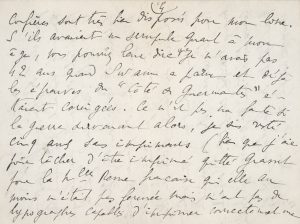 confrères sont très bien disposés pour mon livre.
S'ils avaient un scrupule quant à mon
âge, vous pouvez leur dire que je n'avais pas
42 ans quand Swann a paru et déjà
les épreuves du "Côté de Guermantes" é-
taient corrigées. Ce n'est pas ma faute si
la guerre survenant alors, je suis resté
cinq ans sans imprimeurs (bien que j'aie
fait tâcher d'être imprimé quitté Grasset
pour la Nlle Revue française qui elle au
moins n'était pas fermée mais n'avait pas de
typographes capables d'imprimer correctement